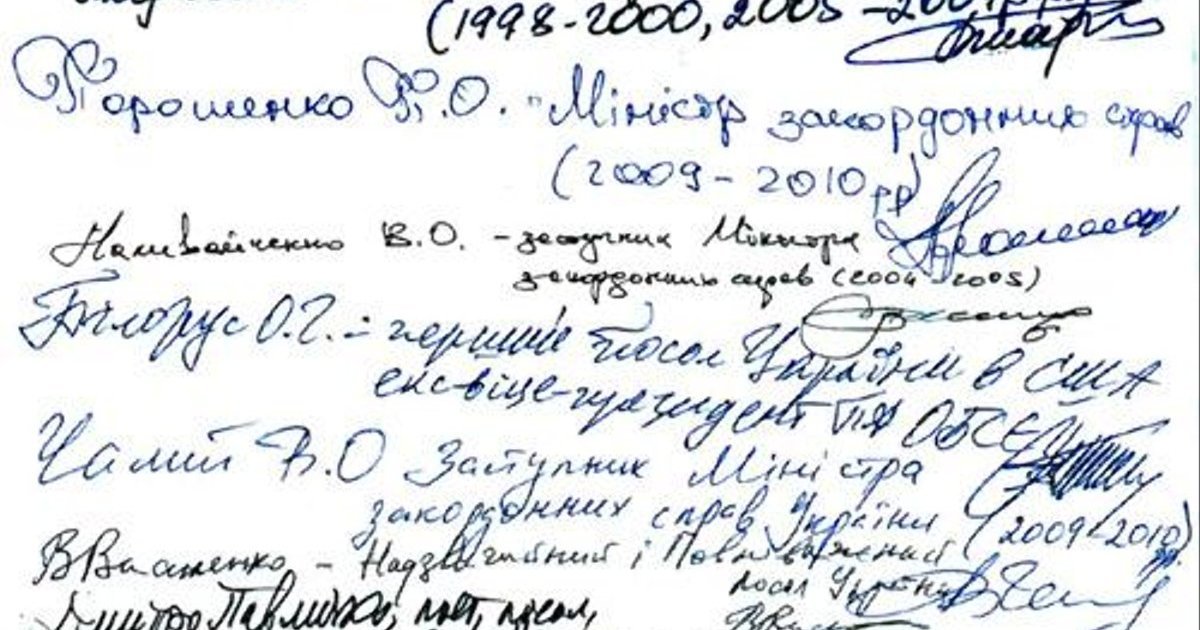 (1998-2000, 2005 -2007рр)
Порошенко П.О. - Міністр закордонних справ
(2009 - 2010 рр)
Наливайченко В.О. - заступник Міністра
закордонних справ (2004 - 2005)
Білорус О.Г. - перший Посол України в США
екс-віце-президент ПА ОБСЄ
Чалий В.О Заступник Міністра
закордонних справ України (2009-2010)
рр.
В Василенко - Надзвичайний і Повноважений
посол України
Дмитро Павличко, поет, посол,